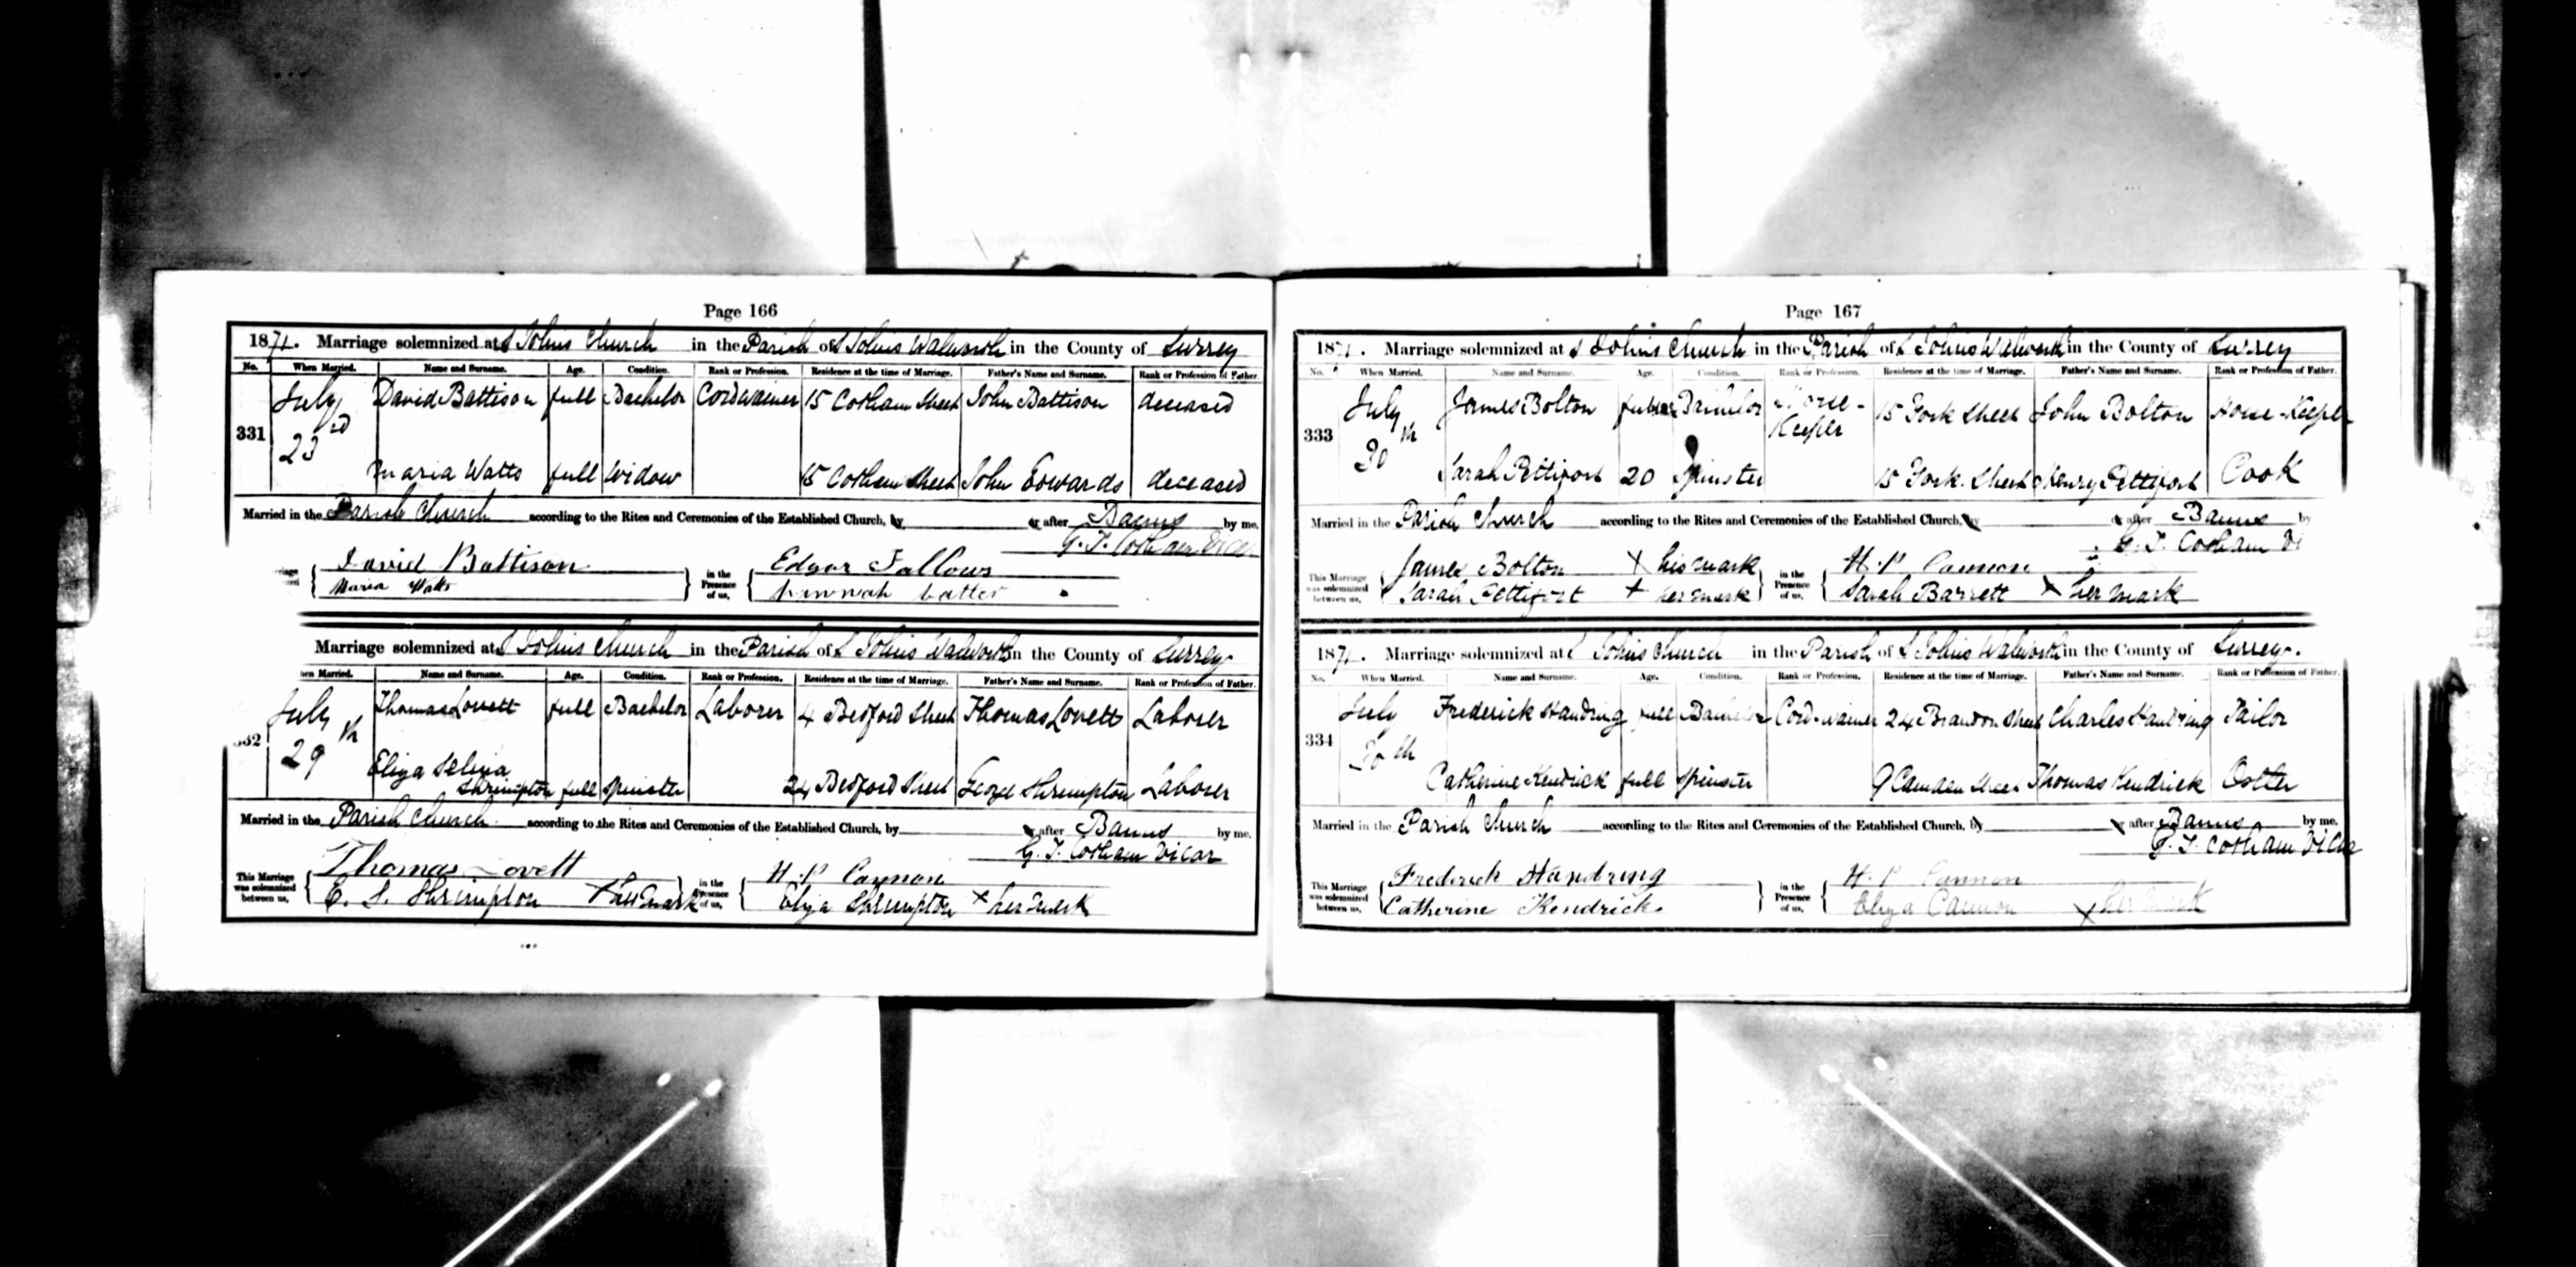 Page 166
1871. Marriage solemnized at St Johns Church in the Parish of St Johns Walworth in the County of Surrey
No. When Married. Name and Surname. Age. Condition. Rank or Profession. Residence at the time of Marriage. Father's Name and Surname. Rank or Profession of Father.
331 July 23rd David Battison full Bachelor Cordwainer 15 Cotham Street John Battison deceased
Maria Watts full Widow 15 Cotham Street John Edwards deceased
Married in the Parish Church according to the Rites and Ceremonies of the Established Church, by or after Banns by me,
G. T. Cotham Vicar
David Battison in the Presence of us, Edgar Fallows
Maria Watts Hannah
Marriage solemnized at St Johns Church in the Parish of St Johns Walworth in the County of Surrey
When Married. Name and Surname. Age. Condition. Rank or Profession. Residence at the time of Marriage. Father's Name and Surname. Rank or Profession of Father.
332 July 29th Thomas Lovett full Bachelor Laborer 4 Bedford Street Thomas Lovett Laborer
Eliza Selina Shrimpton full Spinster 24 Bedford Street George Shrimpton Laborer
Married in the Parish Church according to the Rites and Ceremonies of the Established Church, by or after Banns by me,
G. T. Cotham Vicar
This Marriage was solemnized between us, Thomas Lovett in the Presence of us, H. P. Cannon
E. S. Shrimpton X her mark Eliza Shrimpton X her mark
Page 167
1871. Marriage solemnized at St Johns Church in the Parish of St Johns Walworth in the County of Surrey
No. When Married. Name and Surname. Age. Condition. Rank or Profession. Residence at the time of Marriage. Father's Name and Surname. Rank or Profession of Father.
333 July 30th James Bolton full Bachelor Horse-Keeper 15 York Street John Bolton Horse-Keeper
Sarah Pettifort 20 Spinster 15 York Street Henry Pettifort Cook
Married in the Parish Church according to the Rites and Ceremonies of the Established Church, by or after Banns by
G. T. Cotham Vi
This Marriage was solemnized between us, James Bolton X his mark in the Presence of us, H. P. Cannon
Sarah Pettifort X her mark Sarah Barrett X her mark
1871. Marriage solemnized at St Johns Church in the Parish of St Johns Walworth in the County of Surrey.
No. When Married. Name and Surname. Age. Condition. Rank or Profession. Residence at the time of Marriage. Father's Name and Surname. Rank or Profession of Father.
334 July 30th Frederick Handring full Bachelor Cordwainer 24 Brandon Street Charles Handring Tailor
Catherine Kendrick full Spinster 9 Camden Street Thomas Kendrick Ostler
Married in the Parish Church according to the Rites and Ceremonies of the Established Church, by or after Banns by me,
G. T. Cotham Vicar
This Marriage was solemnized between us, Frederick Handring in the Presence of us, H. P. Cannon
Catherine Kendrick. Eliza Cannon X her mark